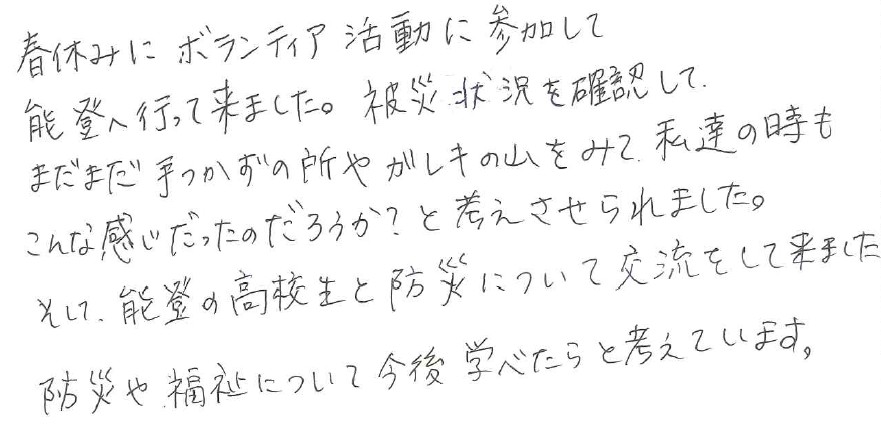 春休みに ボランティア 活動に 参加して
能登へ行って来ました。被災状況を確認して、
まだまだ 手つかずの所や ガレキの山をみて、私達の時も
こんな感じだったのだろうか？と 考えさせられました。
そして、能登の高校生と 防災について 交流をして来ました
防災や 福祉について 今後 学べたらと考えています。